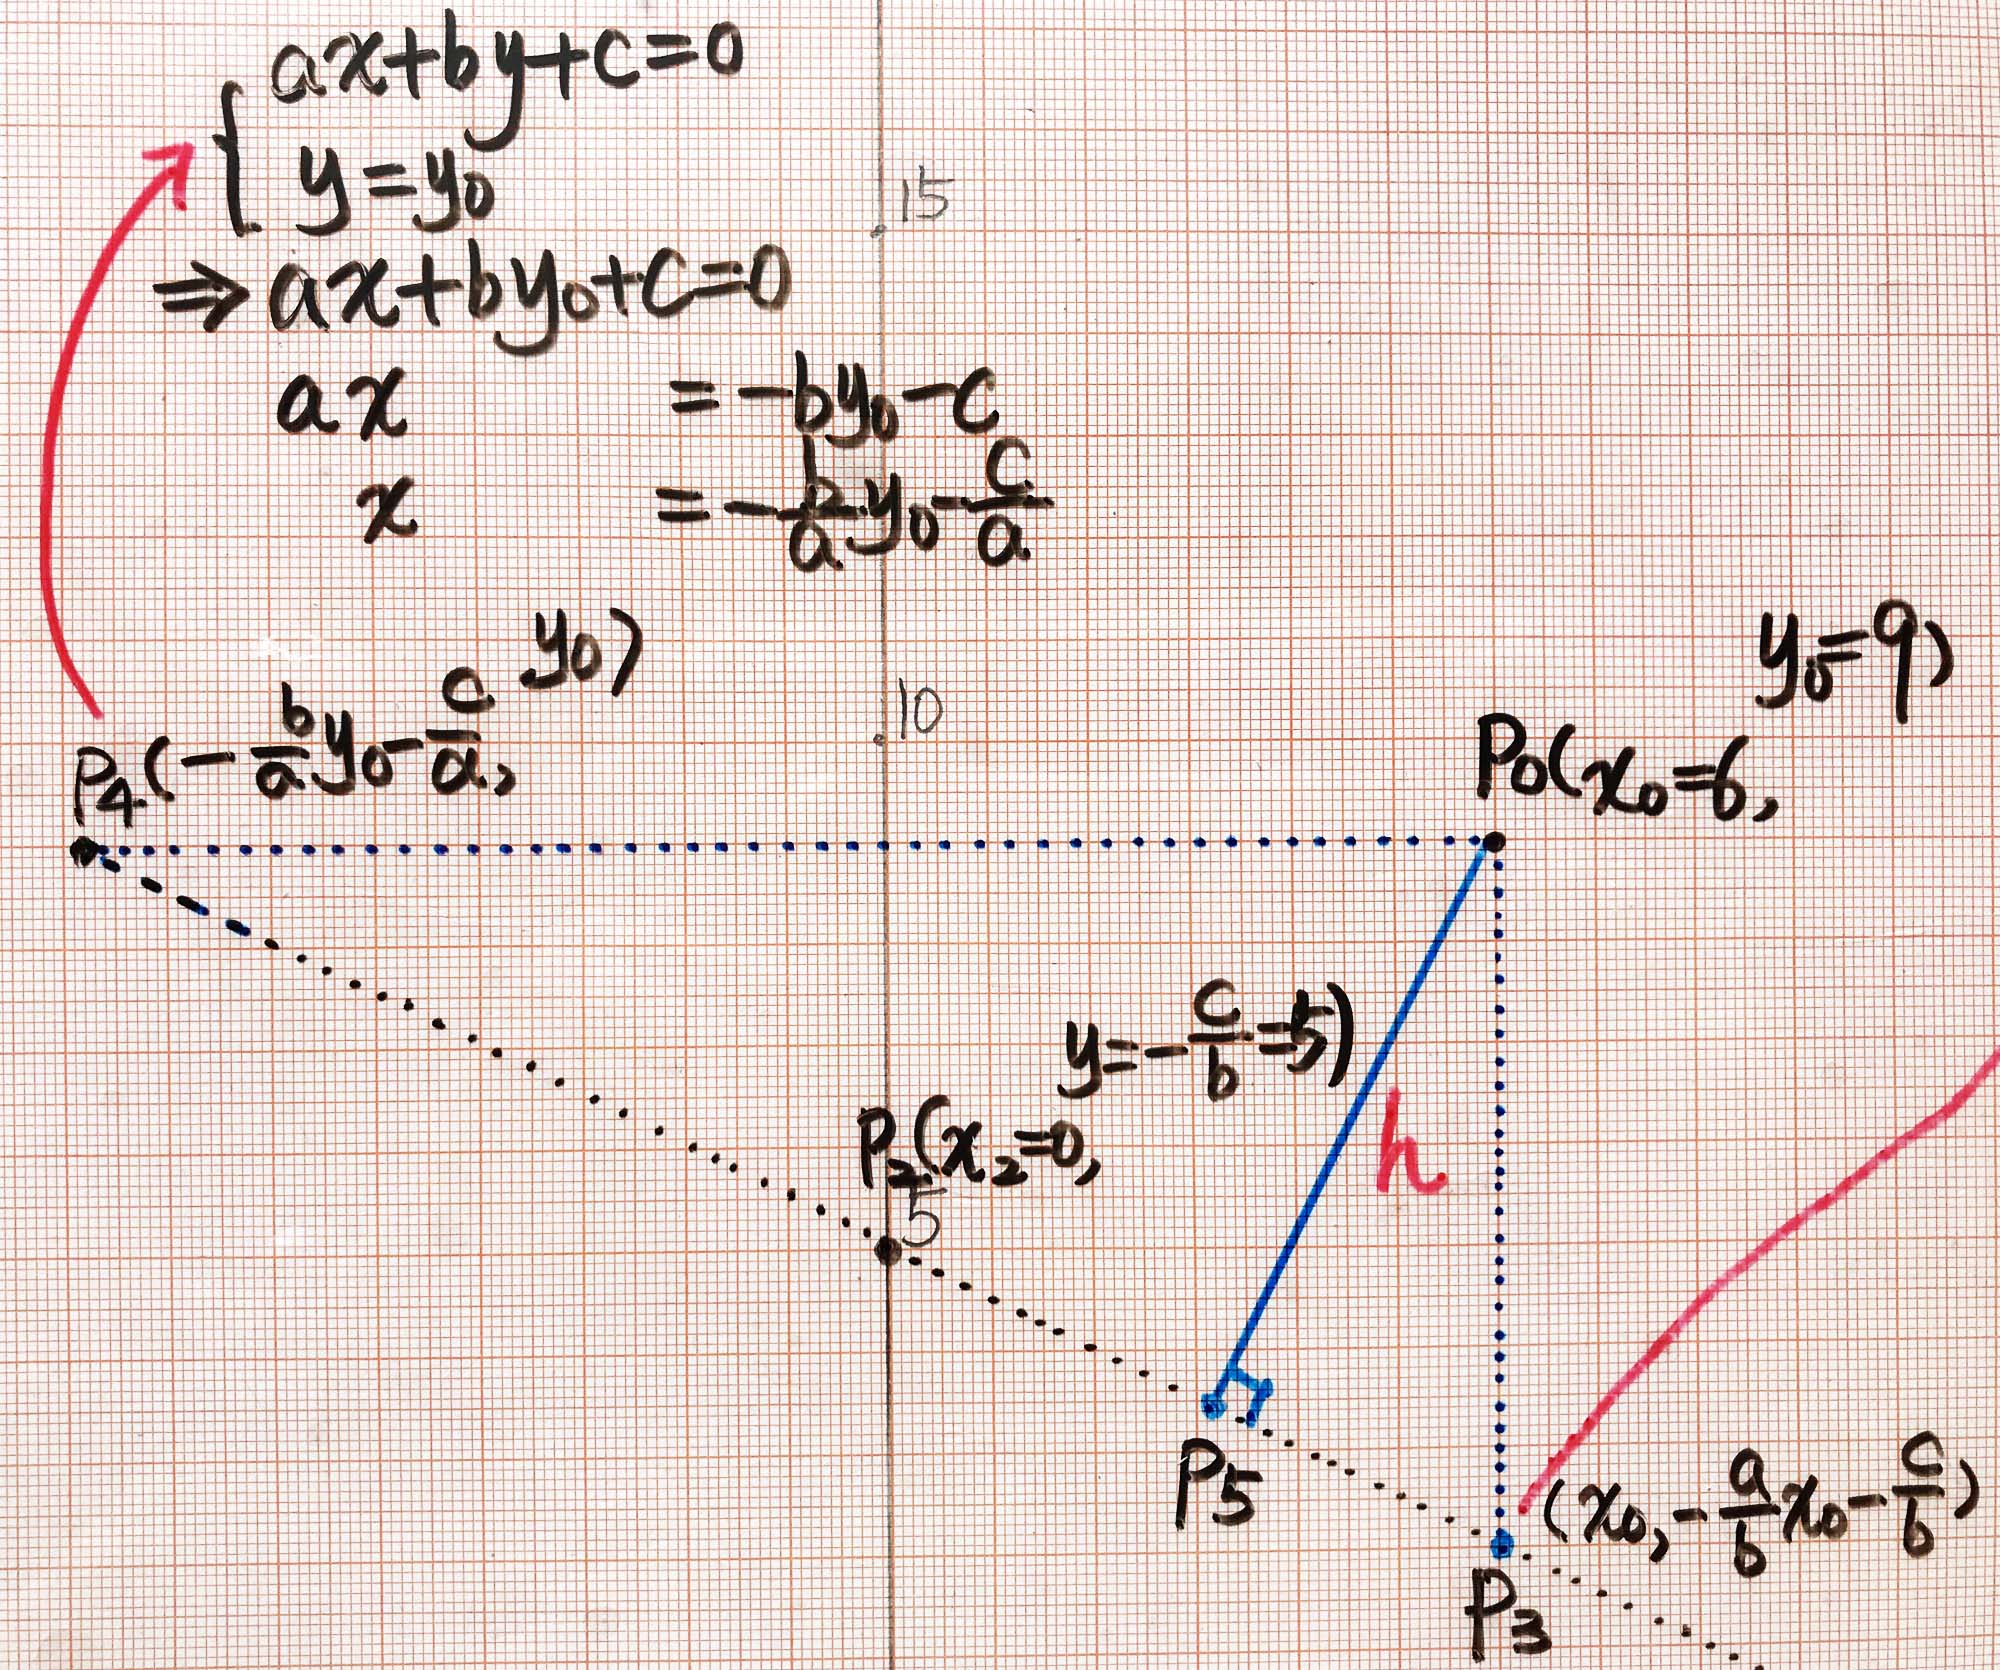 ax+by+c=0
y=y₀
⇒ax+by₀+c=0
ax =-by₀-c
x =-b/a y₀-c/a
15
10
5
P₄(-b/a y₀-c/a, y₀)
P₀(x₀=6, y₀=9)
P₂(x₂=0, y=-c/b=5)
h
P₅
(x₀,-a/b x₀-c/b)
P₃